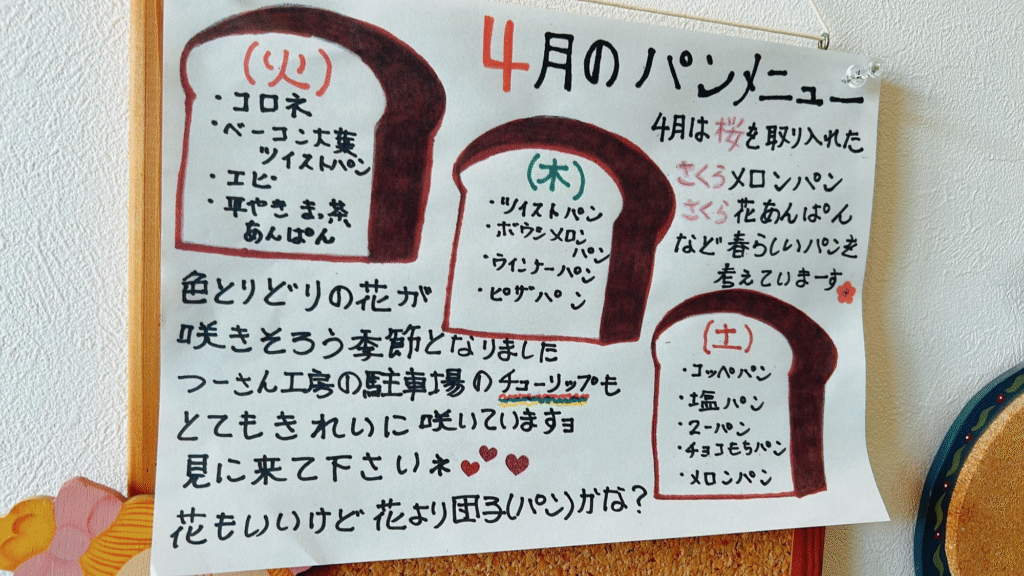 4月のパンメニュー
(火)
・コロネ
・ベーコン大葉
ツイストパン
・エピ
・平やきまっ茶
あんぱん
(木)
・ツイストパン
・ボウシメロン
パン
・ウインナーパン
・ピザパン
4月は桜を取り入れた
さくらメロンパン
さくら花あんぱん
など春らしいパンを
考えていまーす
(土)
・コッペパン
・塩パン
・スーパン
・チョコもちパン
・メロンパン
色とりどりの花が
咲きそろう季節となりました
つーさん工房の駐車場のチューリップも
とてもきれいに咲いていますョ
見に来て下さいネ
花もいいけど花より団子(パン)かな?